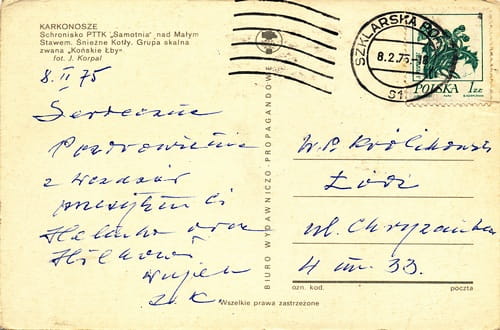 KARKONOSZE
Schronisko PTTK „Samotnia" nad Małym
Stawem. Śnieżne Kotły. Grupa skalna
zwana „Końskie Łby"
fot. J. Korpal
8. II 75
Serdeczne
Pozdrowienia
z wczasów
przesyłam Ci
Halinko oraz
wujek
Z. K
BIURO WYDAWNICZO-PROPAGANDOWE
Wszelkie prawa zastrzeżone
SZKLARSKA POR
8.2.75.-18
POLSKA 1 ZŁ
W.P. Królikowski
Łódź
ul. Chryzantem
4 m. 33.
ozn. kod.
poczta